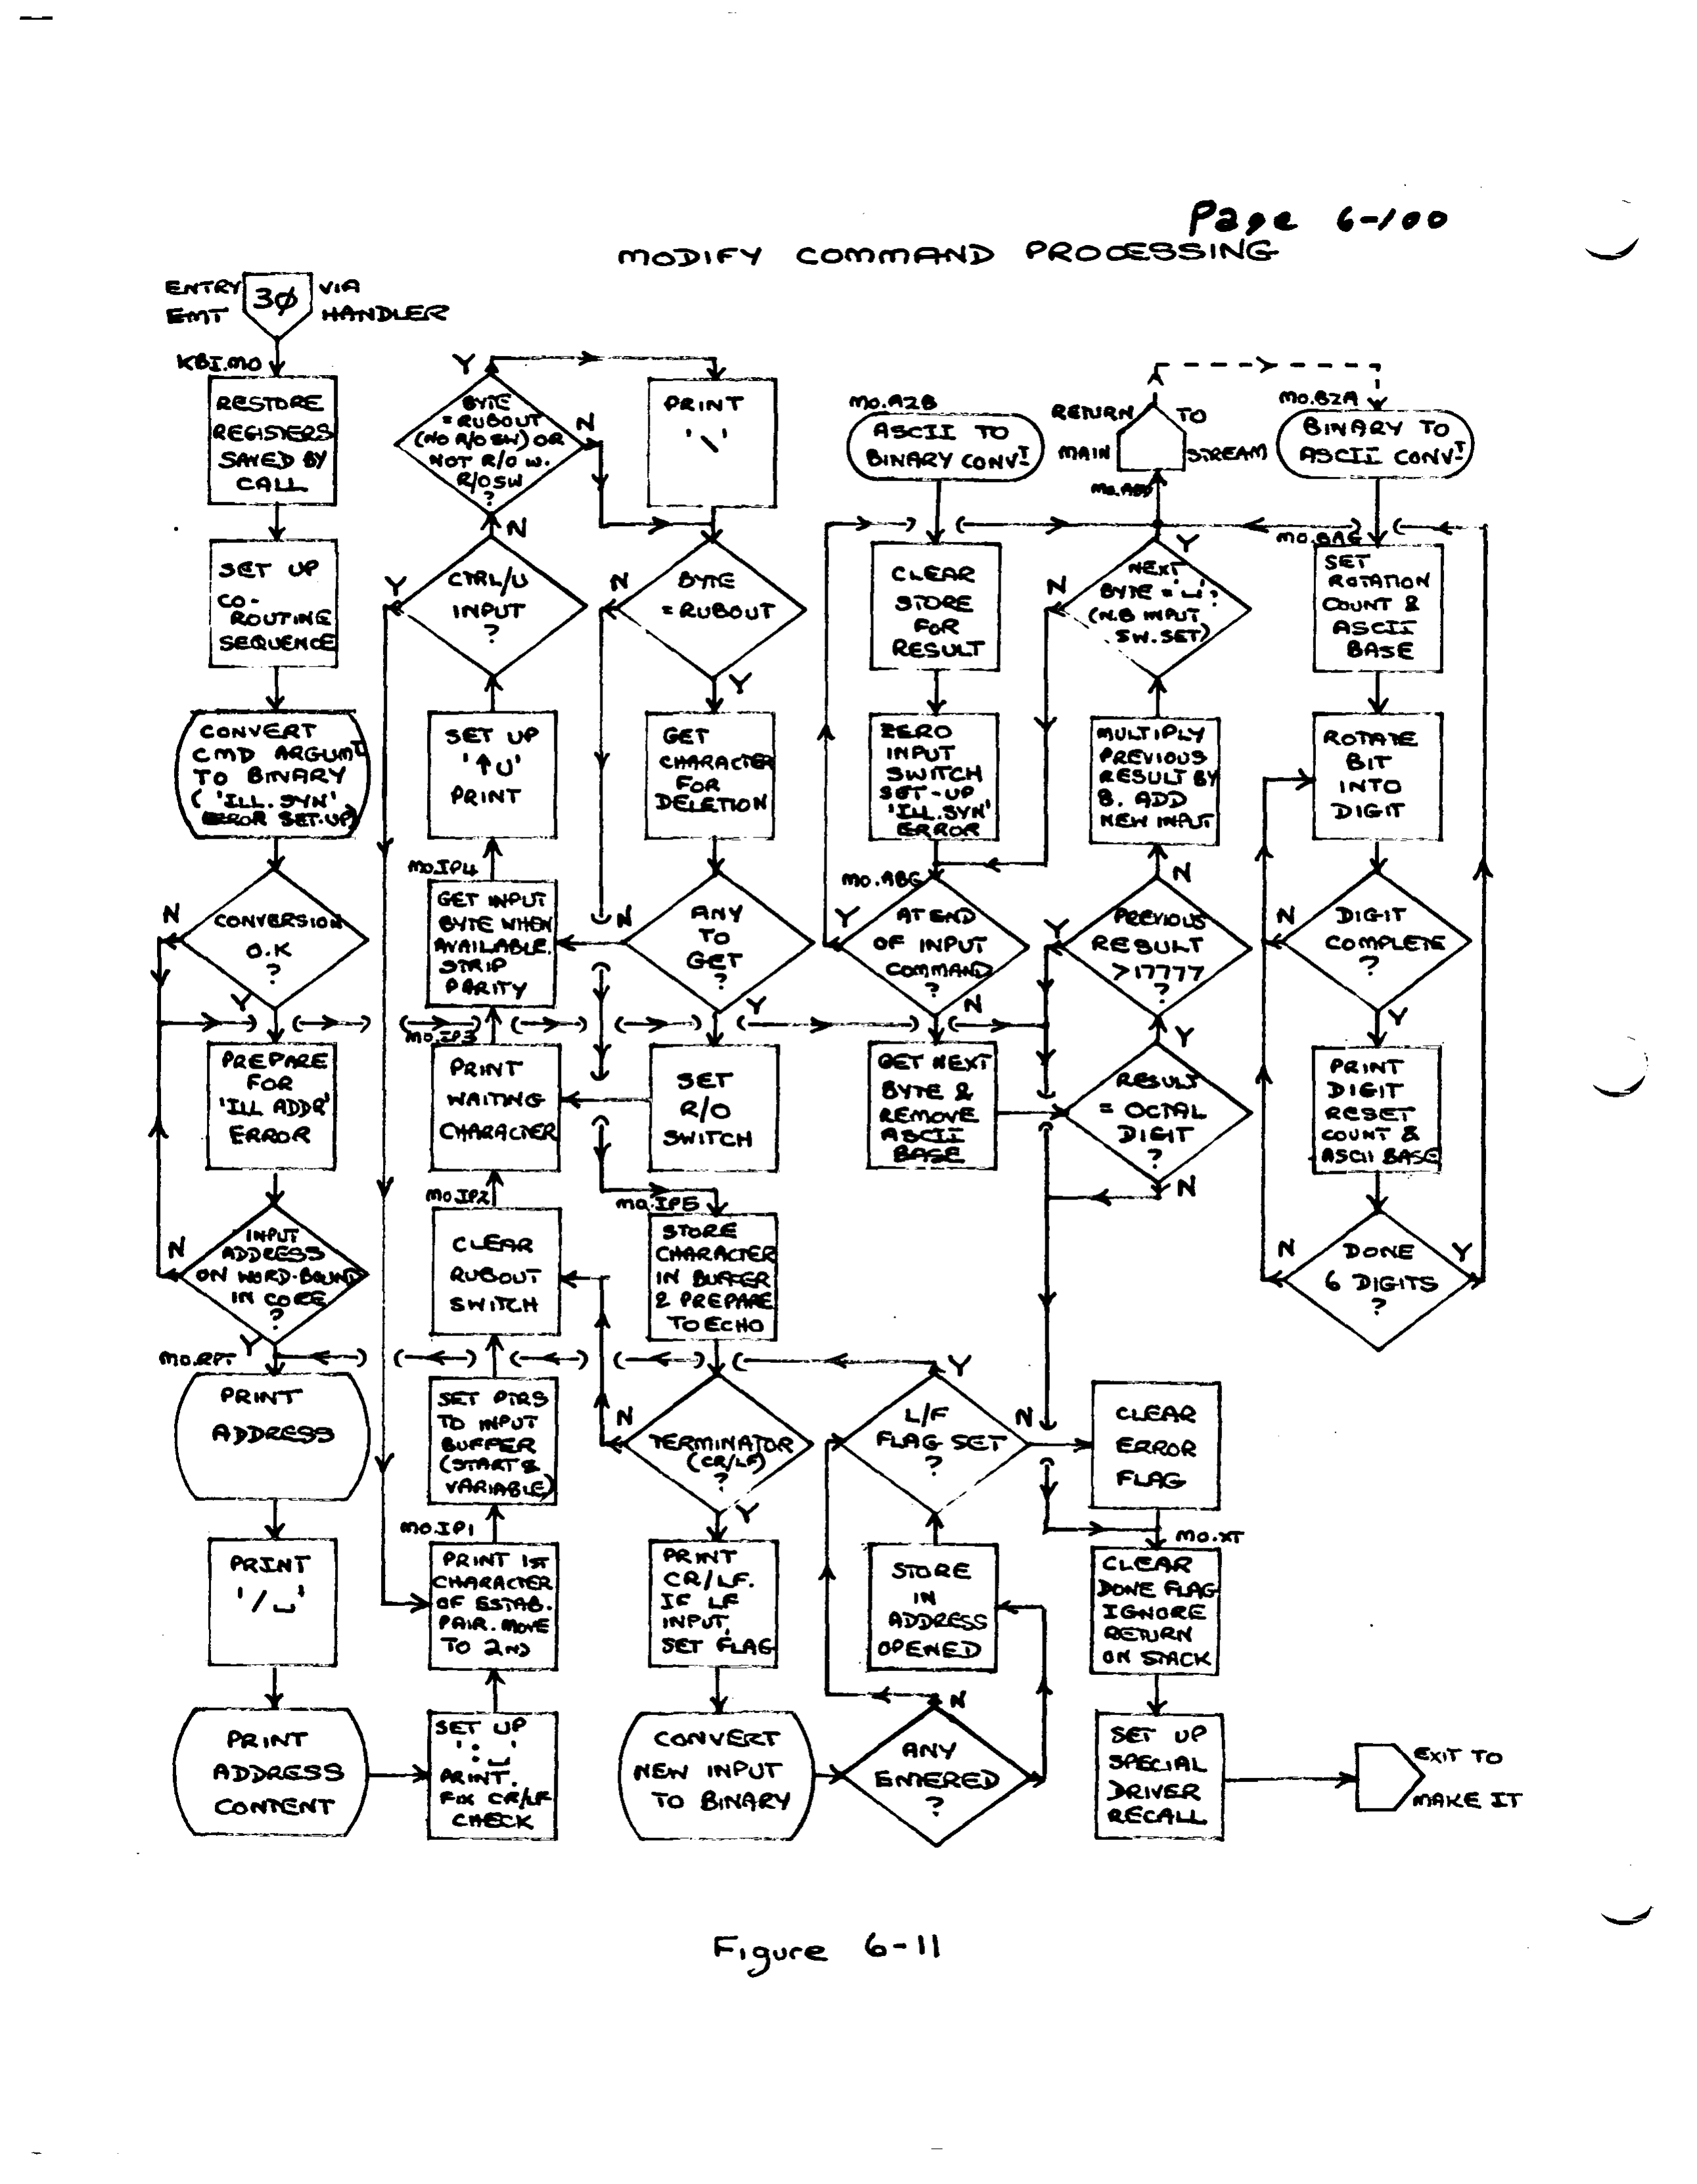 Page 6-100
MODIFY COMMAND PROCESSING
ENTRY 3Ø VIA
EMT HANDLER
KBI.MO
RESTORE
REGISTERS
SAVED BY
CALL
SET UP
CO-
ROUTINE
SEQUENCE
CONVERT
CMD ARGUMT
TO BINARY
( 'ILL.SYN'
ERROR SET-UP)
CONVERSION
O.K
?
N
Y
PREPARE
FOR
'ILL ADDR'
ERROR
INPUT
ADDRESS
ON WORD-BOUND
IN CORE
?
N
Y
MO.RPT
PRINT
ADDRESS
PRINT
'/⌴'
PRINT
ADDRESS
CONTENT
Y
BYTE
=RUBOUT
(NO R/O SW) OR
NOT R/O W.
R/O SW
?
N
N
CTRL/U
INPUT
?
Y
SET UP
'↑U'
PRINT
MO.IP4
GET INPUT
BYTE WHEN
AVAILABLE.
STRIP
PARITY
MO.IP3
PRINT
WAITING
CHARACTER
MO.IP2
CLEAR
RUBOUT
SWITCH
SET PTRS
TO INPUT
BUFFER
(START &
VARIABLE)
MO.IP1
PRINT 1ST
CHARACTER
OF ESTAB.
PAIR. MOVE
TO 2ND
SET UP
':⌴'
PRINT.
FIX CR/LF
CHECK
PRINT
'\'
BYTE
=RUBOUT
N
Y
GET
CHARACTER
FOR
DELETION
ANY
TO
GET
?
N
Y
SET
R/O
SWITCH
MO.IP5
STORE
CHARACTER
IN BUFFER
& PREPARE
TO ECHO
TERMINATOR
(CR/LF)
?
N
Y
PRINT
CR/LF.
IF LF
INPUT,
SET FLAG
CONVERT
NEW INPUT
TO BINARY
MO.A2B
ASCII TO
BINARY CONVT
CLEAR
STORE
FOR
RESULT
ZERO
INPUT
SWITCH
SET-UP
'ILL.SYN'
ERROR
MO.ABG
AT END
OF INPUT
COMMAND
?
Y
N
GET NEXT
BYTE &
REMOVE
ASCII
BASE
Y
L/F
FLAG SET
?
N
STORE
IN
ADDRESS
OPENED
N
ANY
ENTERED
?
RETURN TO
MAIN STREAM
Y
NEXT
BYTE = '⌴'?
(N.B INPUT
SW. SET)
N
MULTIPLY
PREVIOUS
RESULT BY
8. ADD
NEW INPUT
N
PREVIOUS
RESULT
>17777
?
Y
Y
RESULT
= OCTAL
DIGIT
?
N
CLEAR
ERROR
FLAG
MO.XT
CLEAR
DONE FLAG
IGNORE
RETURN
ON STACK
SET UP
SPECIAL
DRIVER
RECALL
EXIT TO
MAKE IT
MO.B2A
BINARY TO
ASCII CONVT
MO.BAG
SET
ROTATION
COUNT &
ASCII
BASE
ROTATE
BIT
INTO
DIGIT
DIGIT
COMPLETE
?
N
Y
PRINT
DIGIT
RESET
COUNT &
ASCII BASE
DONE
6 DIGITS
?
N
Y
Figure 6-11